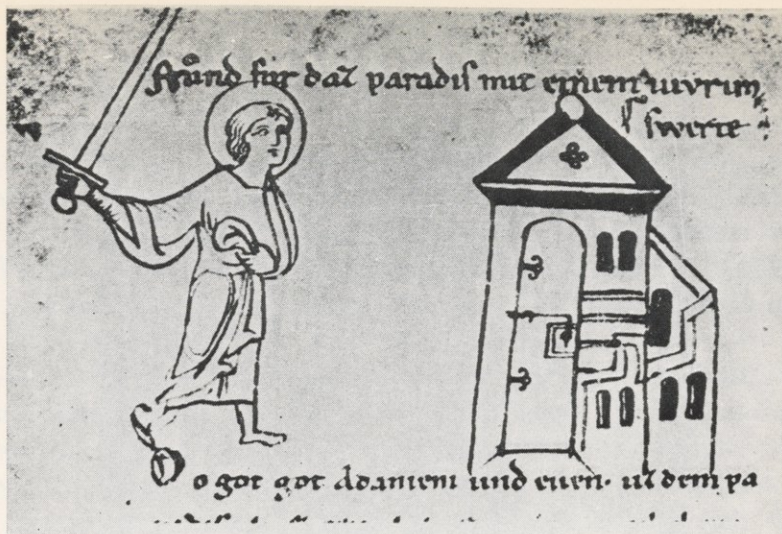 stůnd fur daz paradis mit einem uivrim
swerte
Do got got Adamem und euen. uz dem pa